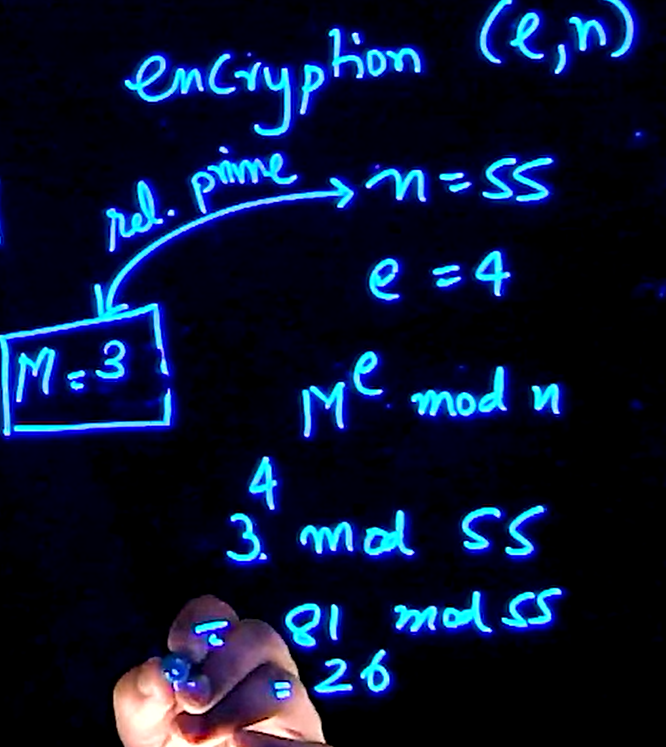 encryption (e,n)
rel. prime
n = 55
e = 4
M = 3
M^e mod n
3^4 mod 55
= 81 mod 55
= 26